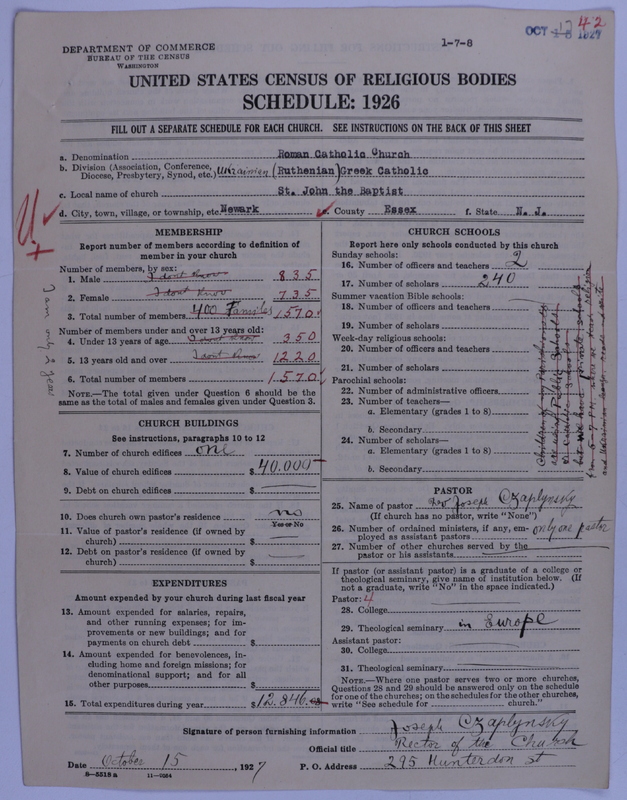 1-7-8
OCT 1927
42
DEPARTMENT OF COMMERCE
BUREAU OF THE CENSUS
WASHINGTON
UNITED STATES CENSUS OF RELIGIOUS BODIES
SCHEDULE: 1926
FILL OUT A SEPARATE SCHEDULE FOR EACH CHURCH. SEE INSTRUCTIONS ON THE BACK OF THIS SHEET
a. Denomination Roman Catholic Church
b. Division (Association, Conference, Diocese, Presbytery, Synod, etc.) Ukrainian (Ruthenian) Greek Catholic
c. Local name of church St. John the Baptist
d. City, town, village, or township, etc. Newark e. County Essex f. State N. J.
MEMBERSHIP
Report number of members according to definition of
member in your church
Number of members, by sex:
1. Male I dont know 835
2. Female I dont know 735
3. Total number of members 400 Families 1570
Number of members under and over 13 years old:
4. Under 13 years of age I dont know 350
5. 13 years old and over I dont know 1220
6. Total number of members 1,570
NOTE.—The total given under Question 6 should be the
same as the total of males and females given under Question 3.
I am only 2 year
CHURCH BUILDINGS
See instructions, paragraphs 10 to 12
7. Number of church edifices one
8. Value of church edifices $ 40.000
9. Debt on church edifices $
10. Does church own pastor's residence no
Yes or No
11. Value of pastor's residence (if owned by
church) $
12. Debt on pastor's residence (if owned by
church) $
EXPENDITURES
Amount expended by your church during last fiscal year
13. Amount expended for salaries, repairs,
and other running expenses; for im-
provements or new buildings; and for
payments on church debt $
14. Amount expended for benevolences, in-
cluding home and foreign missions; for
denominational support; and for all
other purposes $
15. Total expenditures during year $ 12.846
CHURCH SCHOOLS
Report here only schools conducted by this church
Sunday schools:
16. Number of officers and teachers 2
17. Number of scholars 240
Summer vacation Bible schools:
18. Number of officers and teachers
19. Number of scholars
Week-day religious schools:
20. Number of officers and teachers
21. Number of scholars
Parochial schools:
22. Number of administrative officers
23. Number of teachers—
a. Elementary (grades 1 to 8)
b. Secondary
24. Number of scholars—
a. Elementary (grades 1 to 8)
b. Secondary
PASTOR
25. Name of pastor Rev Joseph Czaplynsky
(If church has no pastor, write "None")
26. Number of ordained ministers, if any, em-
ployed as assistant pastors only one pastor
27. Number of other churches served by the
pastor or his assistants
If pastor (or assistant pastor) is a graduate of a college or
theological seminary, give name of institution below. (If
not a graduate, write "No" in the space indicated.)
Pastor: 4
28. College
29. Theological seminary in Europe
Assistant pastor:
30. College
31. Theological seminary
NOTE.—Where one pastor serves two or more churches,
Questions 28 and 29 should be answered only on the schedule
for one of the churches; on the schedules for the other churches,
write "See schedule for church."
Signature of person furnishing information Joseph Czaplynsky
Official title Rector of the Church
Date October 15, 1927 P. O. Address 295 Hunterdon st
8—5518 a 11—9984